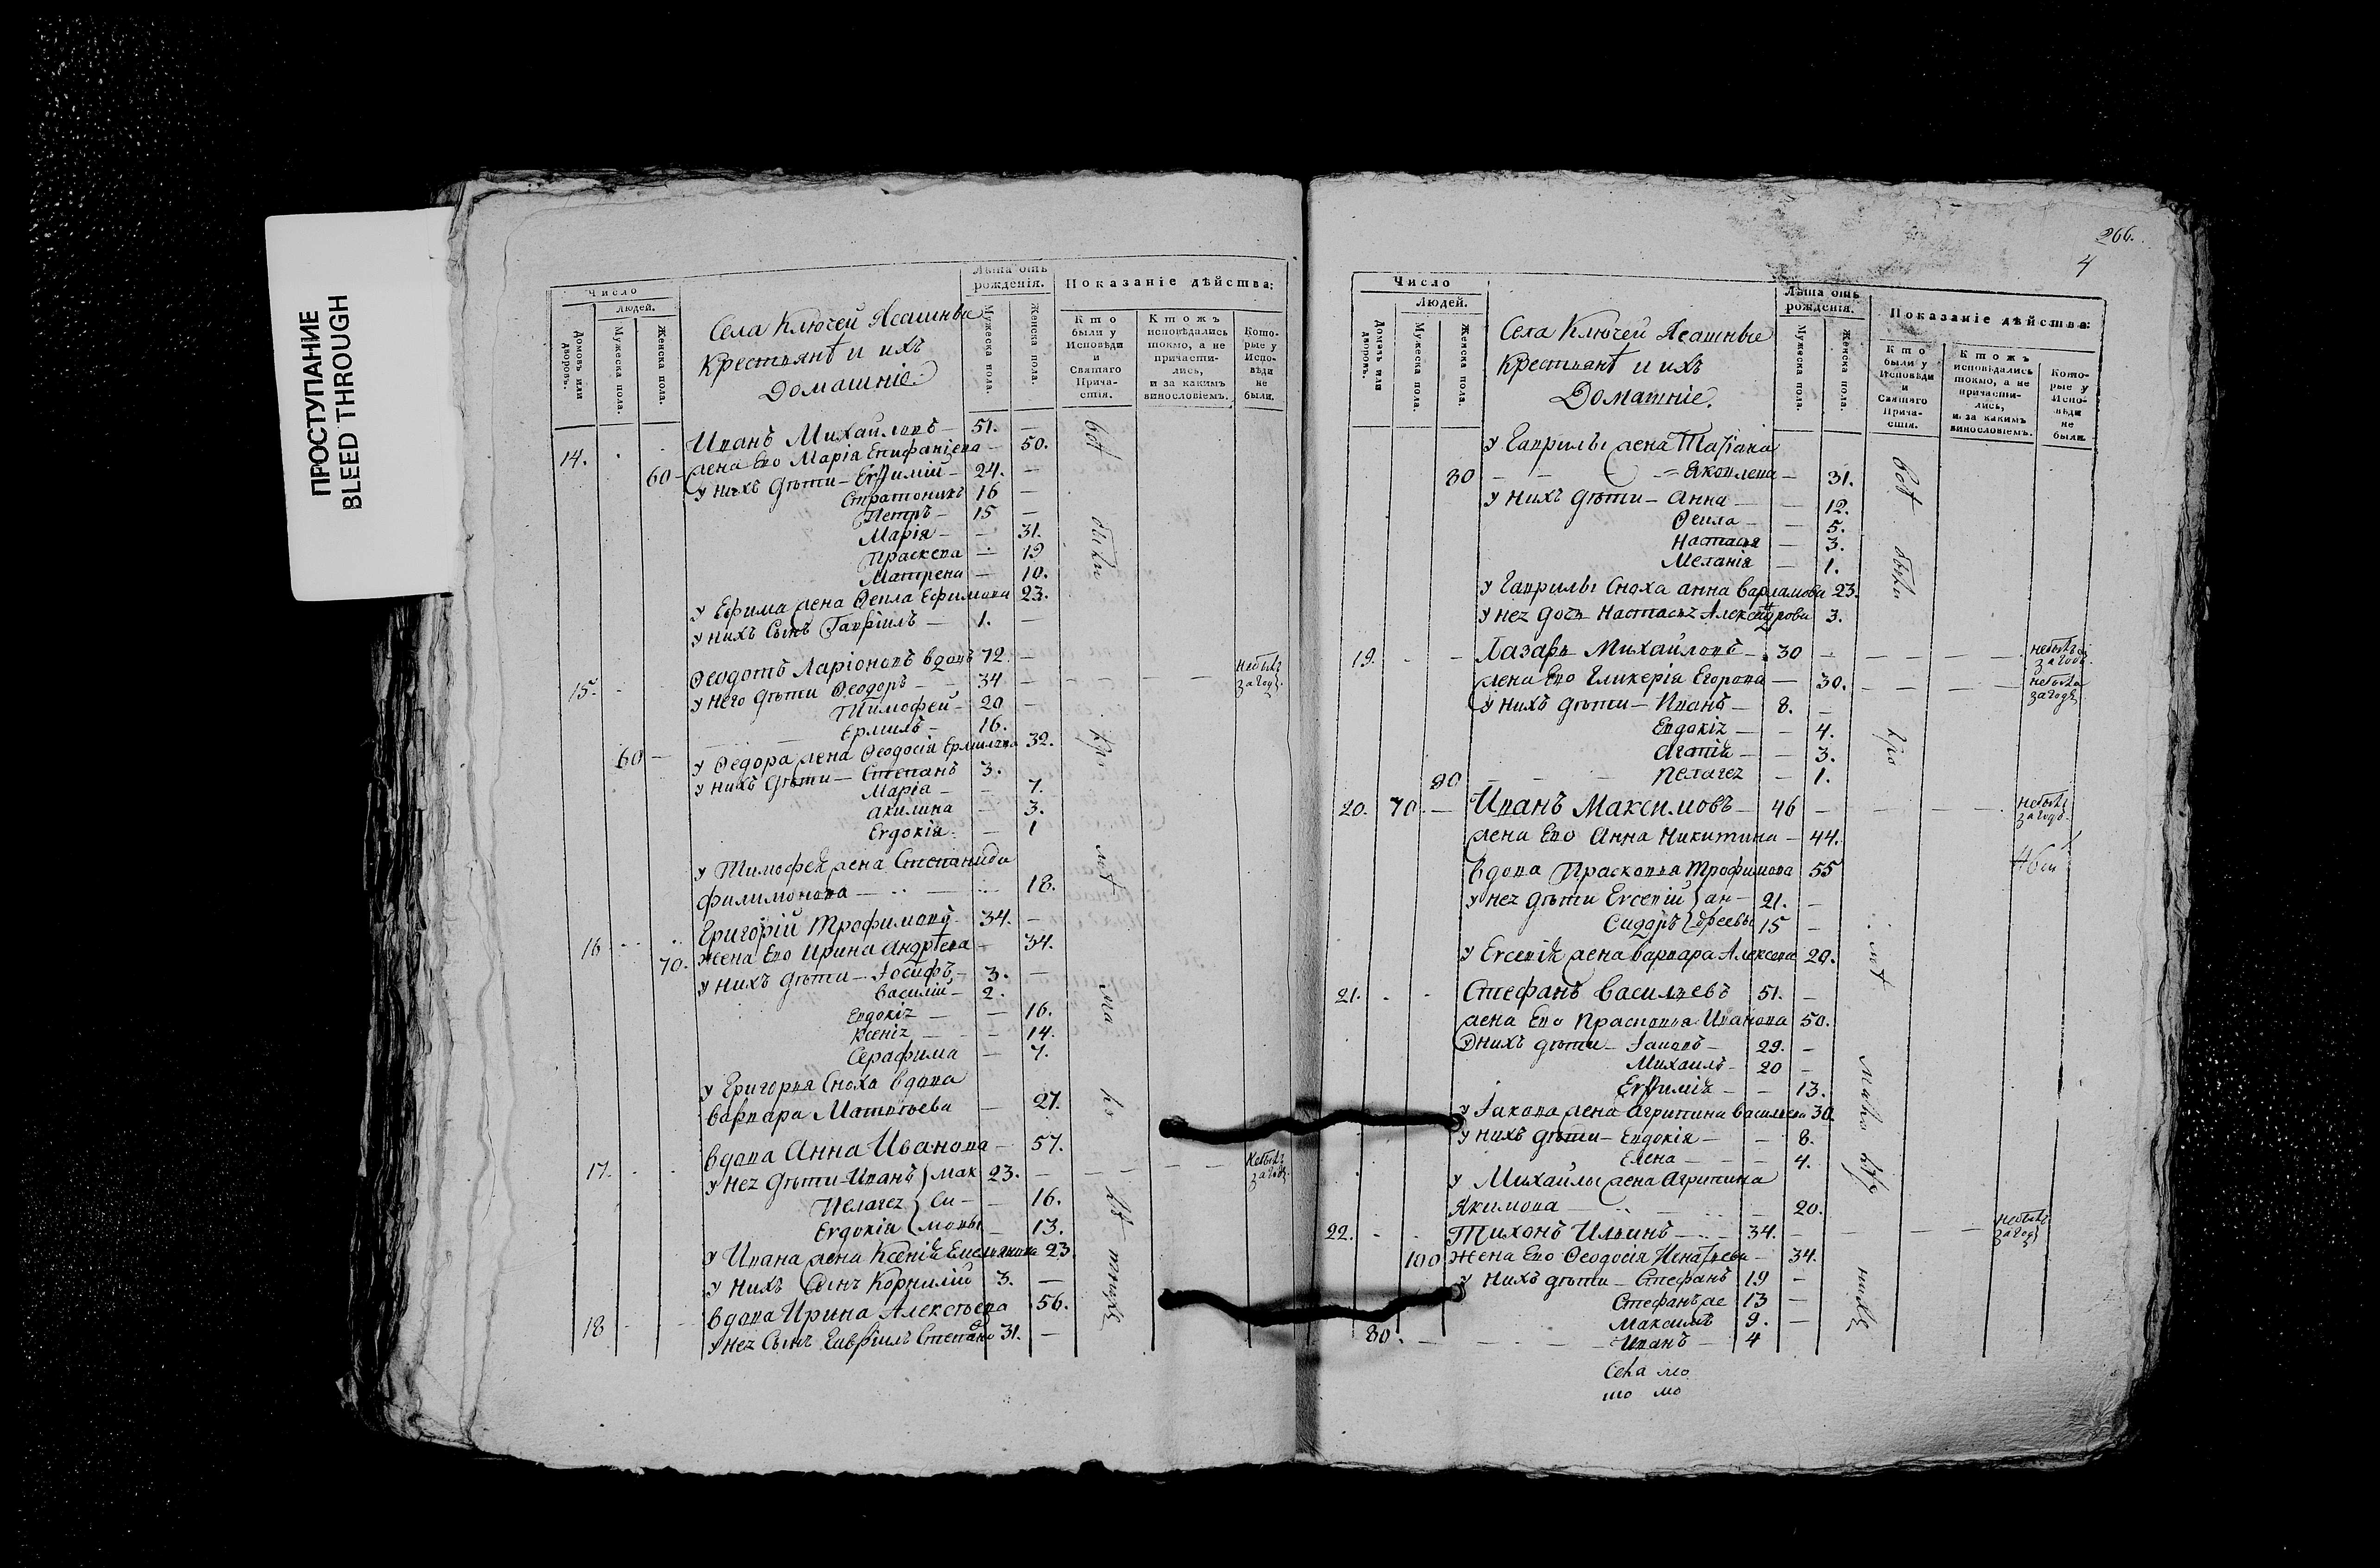 ПРОСТУПАНИЕ
BLEED THROUGH
Число
Людей.
Домовъ или дворовъ.
Мужеска пола.
Женска пола.
Села Ключей Ясашные
Крестьянѣ и ихъ
Домашніе.
Лѣта отъ рожденія.
Мужеска пола.
Женска пола.
Показаніе дѣйства:
Кто были у Исповѣди и Святаго Причастія.
Ктожъ исповѣдались токмо, а не причастились, и за какимъ винословіемъ.
Которые у Исповѣди не были.
14. Иванъ Михайловъ — 51. —
60 — жена Его Марія Епифаніева — 50.
у нихъ дѣти — Евфимій — 24. —
Стратоникъ 16 —
Петръ — 15 —
Марія — — 31.
Праскева — 19
Матрена — 10.
у Ефима жена Ѳекла Ефимова 23.
у нихъ Сынъ Гавріилъ — 1. —
15. Ѳеодотъ Ларіоновъ вдовъ 72. —
у него дѣти Ѳеодоръ — 34 — небылъ за год.
Тимофей — 20 —
Ермилъ — 16.
60 — у Ѳедора жена Ѳеодосія Ермилова 32.
у нихъ дѣти — Степанъ 3.
Марія — — 7.
Акилина — 3.
Евдокія — 1
у Тимофея жена Степанида
Филимонова — 18.
16 Григорій Трофимовъ 34. —
70. жена Его Ирина Андрѣева — 34.
у нихъ дѣти — Іосифъ — 3. —
Василій — 2.
Евдокія — — 16.
Ксенія — — 14.
Серафима — 7.
у Григорья Сноха вдова
Варвара Матвѣева — 27.
17. вдова Анна Иванова — 57.
у нея дѣти — Иванъ } Мак 23. — небылъ за год.
Пелагея } си — 16.
Евдокія } мовы — 13.
у Ивана жена Ксенія Емельянова 23
у нихъ Сынъ Корнилій 3. —
18 вдова Ирина Алексѣева 56.
у нея Сынъ Гавріилъ Степано 31. —
266.
4
Число
Людей.
Домовъ или дворовъ.
Мужеска пола.
Женска пола.
Села Ключей Ясашные
Крестьянѣ и ихъ
Домашніе.
Лѣта отъ рожденія.
Мужеска пола.
Женска пола.
Показаніе дѣйства:
Кто были у Исповѣди и Святаго Причастія.
Ктожъ исповѣдались токмо, а не причастились, и за какимъ винословіемъ.
Которые у Исповѣди не были.
у Гаврилы жена Татіана
80 — — — Яковлева — 31.
у нихъ дѣти — Анна — — 12.
Ѳекла — — 5.
Настасья — 3.
Меланія — 1.
у Гаврилы Сноха Анна Варламова 23.
у нея дочь Настасья Александрова 3.
19. — Лазарь Михайловъ — 30 — небылъ за год.
жена Его Гликерія Егорова — 30. небыла за год
у нихъ дѣти — Иванъ — 8. —
Евдокія — — 4.
Агафія — — 3.
90 Пелагея — 1.
20. 70 — Иванъ Максимовъ — 46 — небылъ за год.
жена Его Анна Никитина — 44.
вдова Прасковья Трофимова 55
у нея дѣти Евсевій } ан — 21. —
Сидоръ } дреевы 15 —
у Евсевія жена Варвара Алексева 20.
21. Стефанъ Васильевъ 51. —
жена Его Прасковья Иванова 50.
у нихъ дѣти — Іаковъ — 29. —
Михаилъ — 20 —
Евфимія — — 13.
у Іакова жена Агрипина Васильева 30.
у нихъ дѣти — Евдокія — — 8.
Елена — — 4.
у Михайлы жена Агрипина
Якимова — 20.
22. Тихонъ Ильинъ — 34. — небылъ за год
100 жена Его Ѳеодосія Игнатьева — 34.
у нихъ дѣти — Стефанъ 19 —
Стефанъ же 13 —
Максимъ 9. —
80. — Иванъ — 4